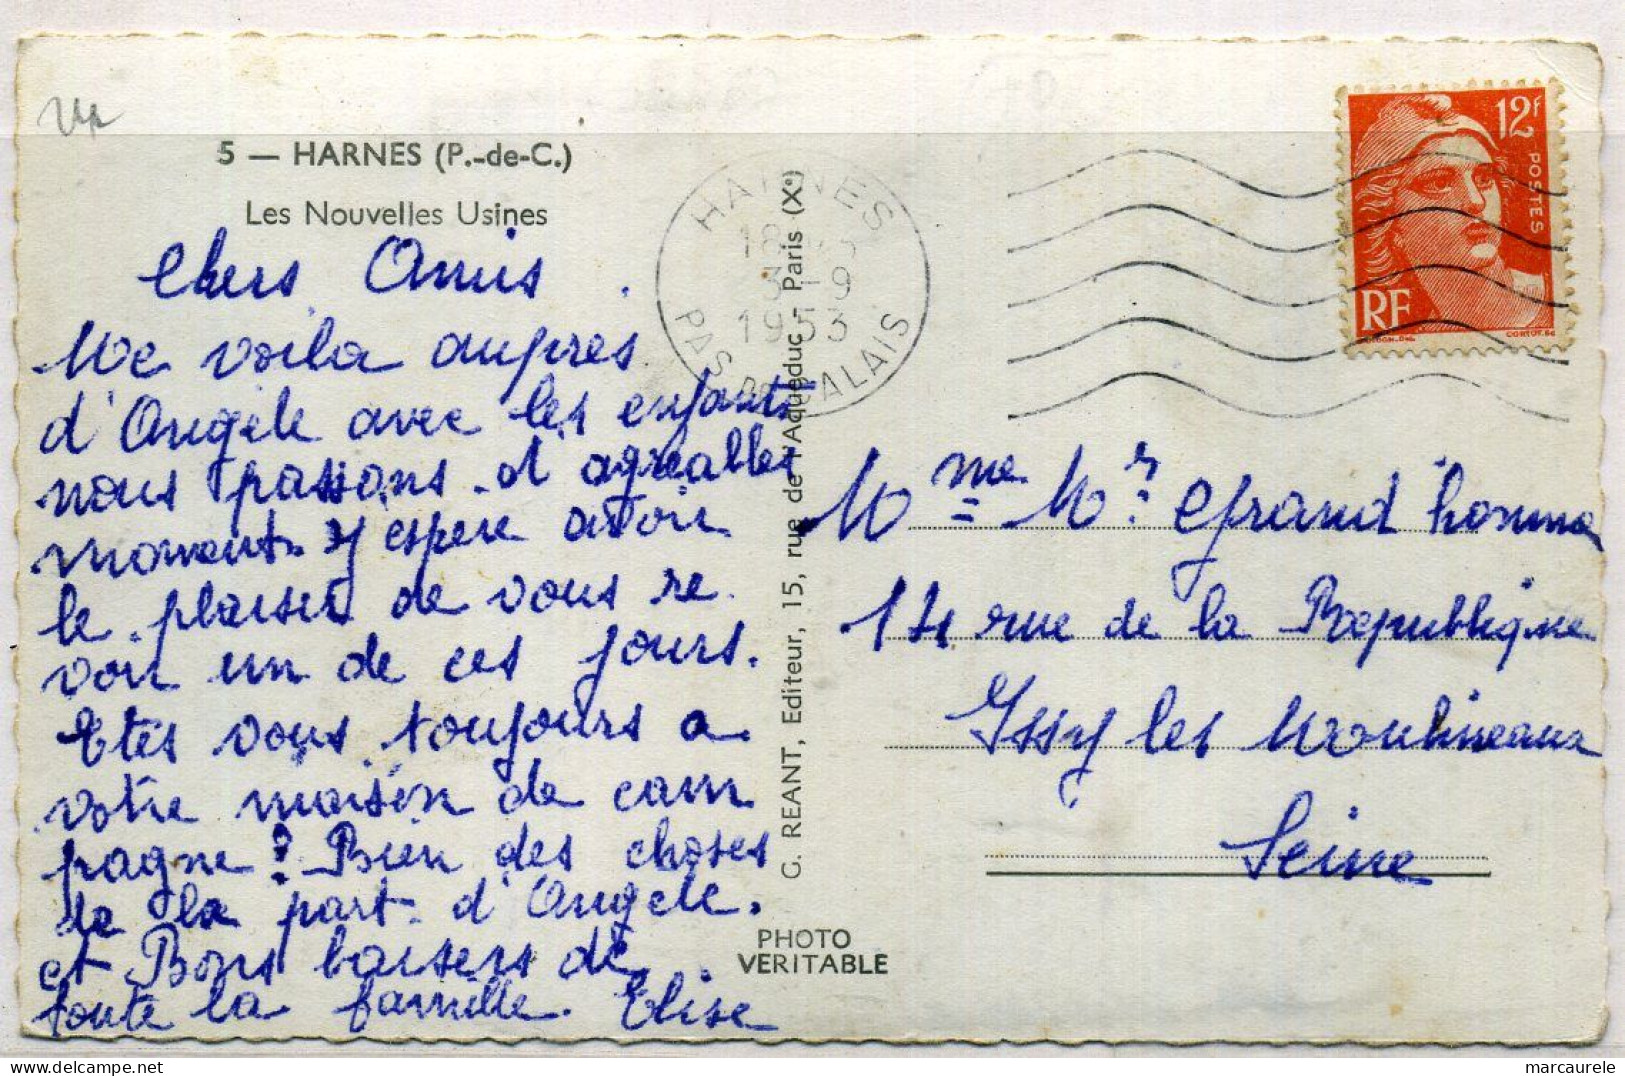 5 — HARNES (P.-de-C.)
Les Nouvelles Usines
Chers Amis.
Me voila aupres
d'Angèle avec les enfants
nous passons d'agreables
moments. J'espere avoir
le plaisir de vous re
voir un de ces jours.
Etes vous toujours a
votre maison de cam
pagne? Bien des choses
de la part d'Angele.
et Bons baisers de
toute la famille. Elise
HARNES
18
3-9
1953
PAS DE CALAIS
G. REANT, Editeur, 15, rue de l'Aqueduc - Paris (Xe)
PHOTO
VERITABLE
12F
POSTES
RF
CORTOT.Sc
Mme Mr. Grand'homme
rue de la Republique
Issy les Moulineaux
Seine
marcaurele